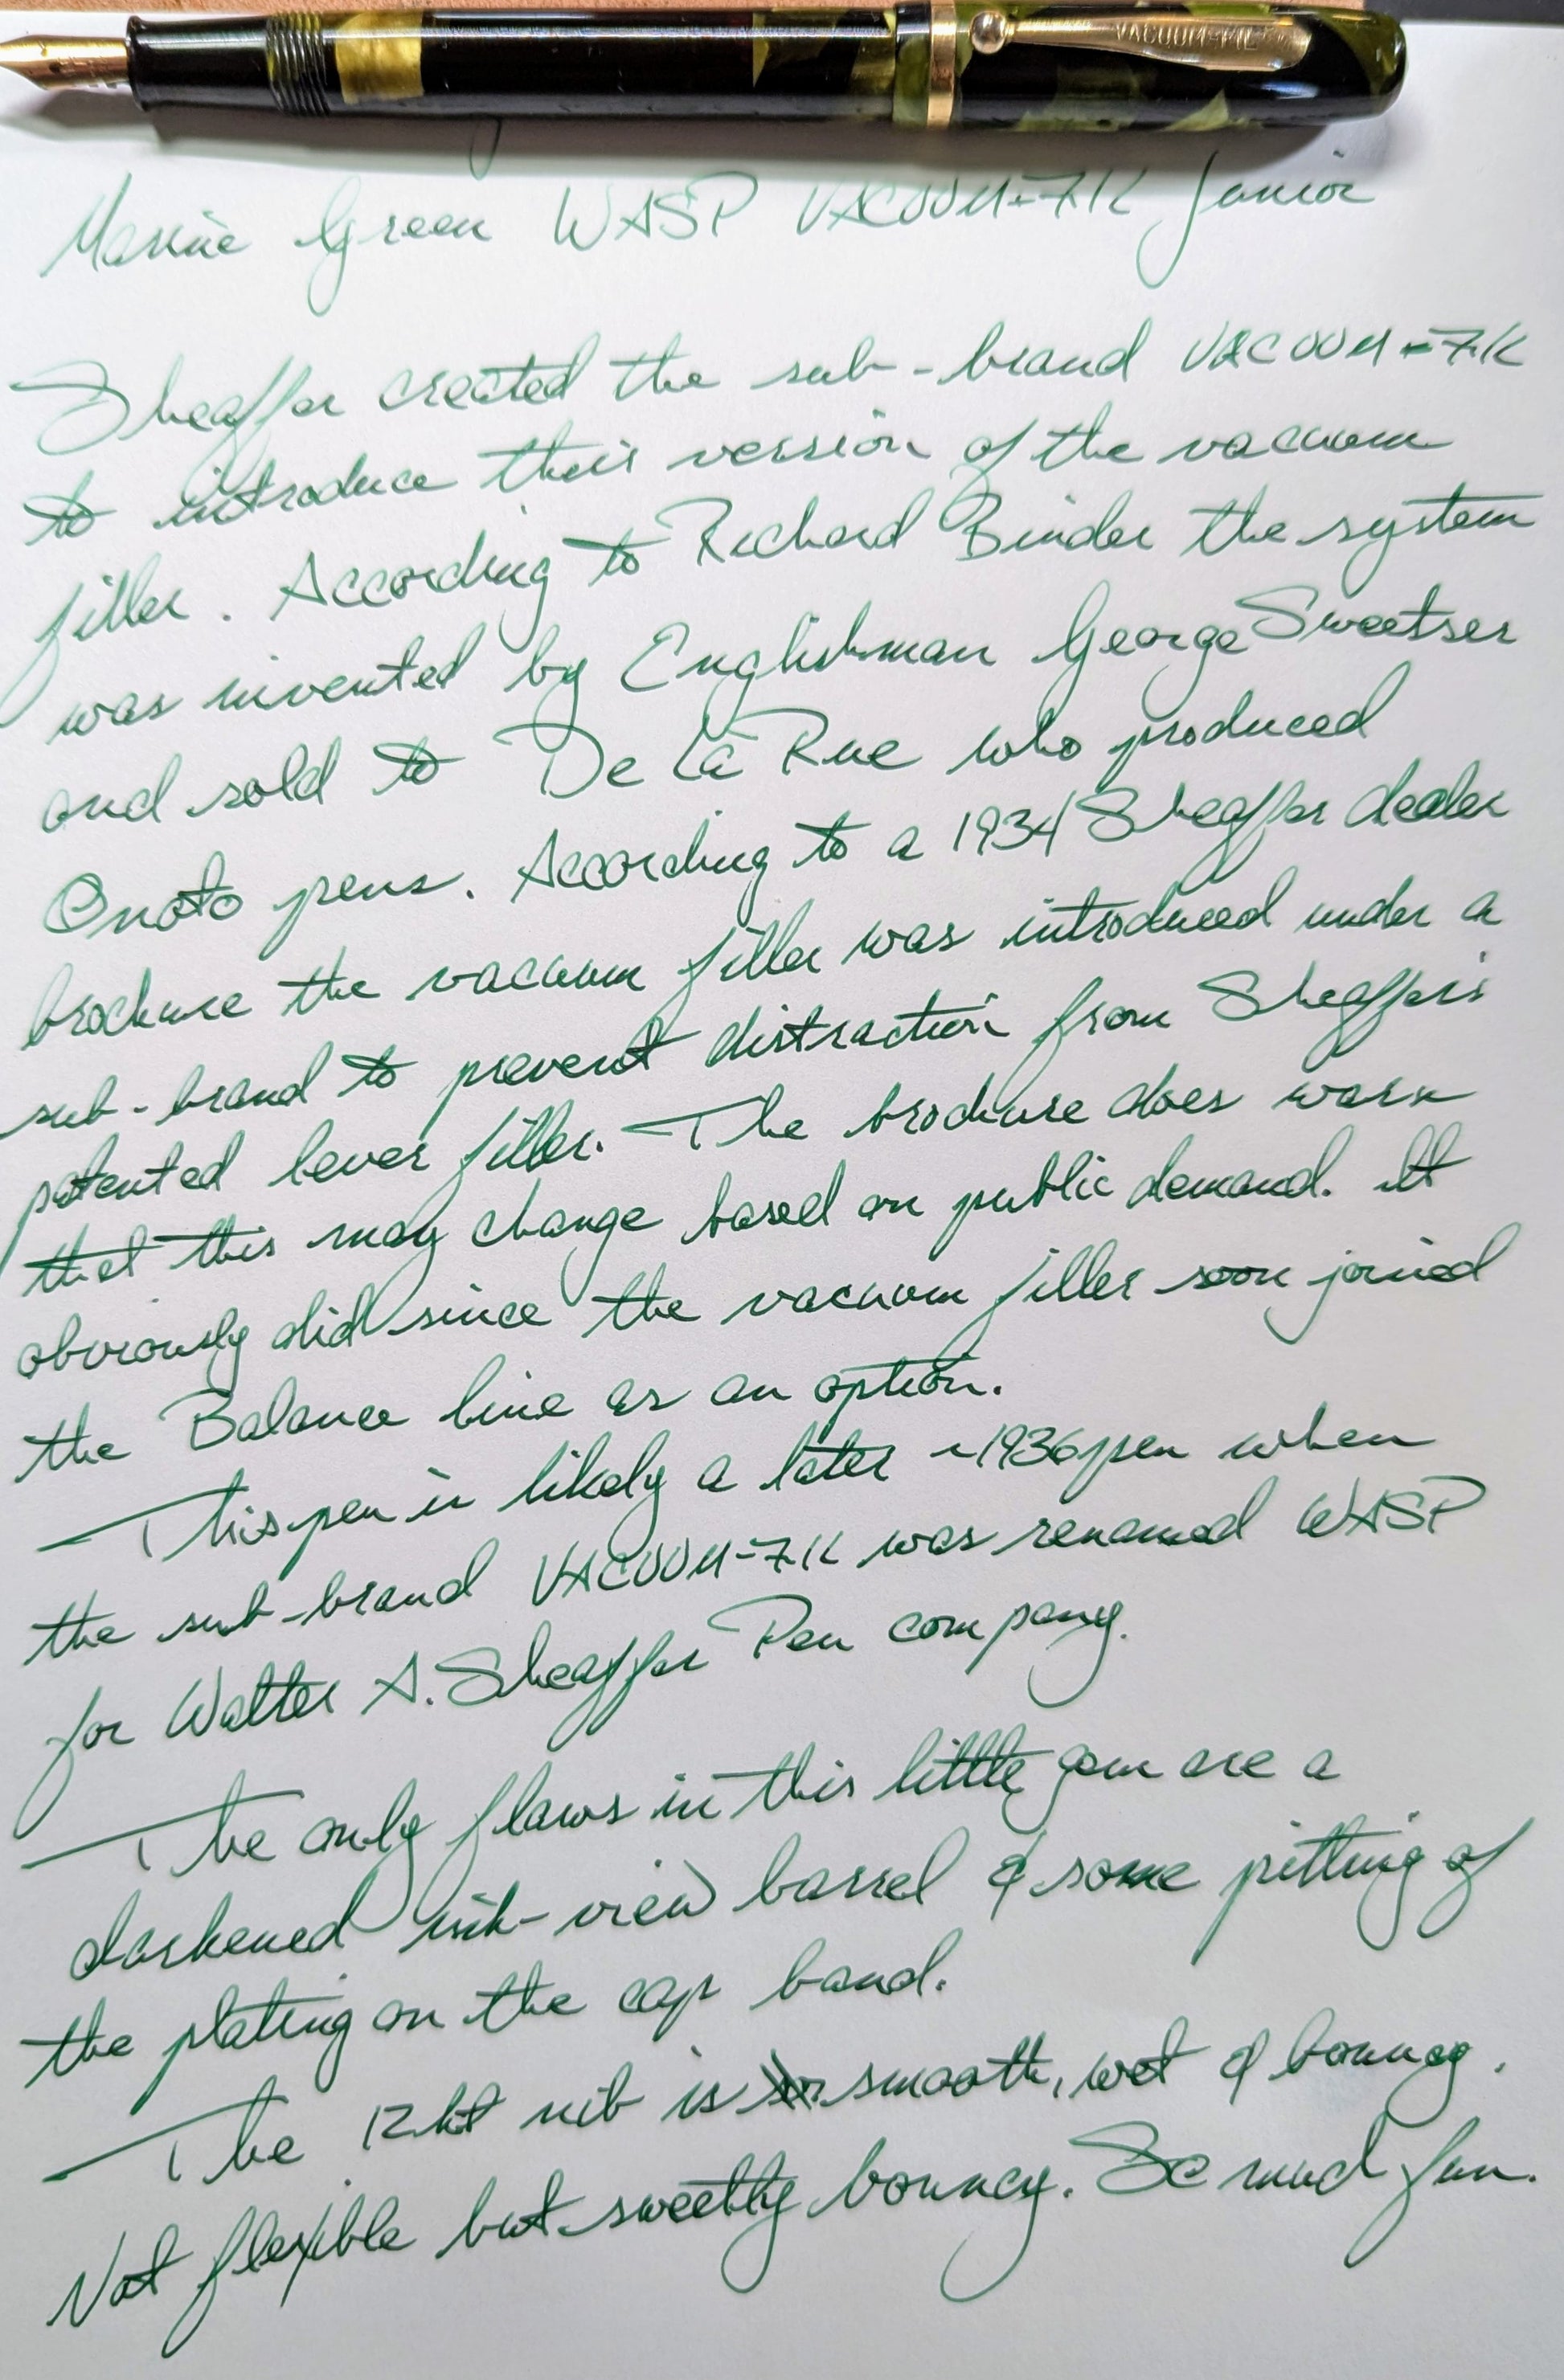 VACUUM-FIL
Marine Green WASP VACUUM-FIL Junior
Sheaffer created the sub-brand VACUUM-FIL
to introduce their version of the vacuum
filler. According to Richard Binder the system
was invented by Englishman George Sweetser
and sold to De La Rue who produced
Onoto pens. According to a 1934 Sheaffer dealer
brochure the vacuum filler was introduced under a
sub-brand to prevent distraction from Sheaffer's
patented lever filler. The brochure does warn
that this may change based on public demand. It
obviously did since the vacuum filler soon joined
the Balance line as an option.
This pen is likely a later ~1936 pen when
the sub-brand VACUUM-FIL was renamed WASP
for Walter A. Sheaffer Pen company.
The only flaws in this little gem are a
darkened ink-view barrel & some pitting of
the plating on the cap band.
The 12kt nib is smooth, wet & bouncy.
Not flexible but sweetly bouncy. So much fun.